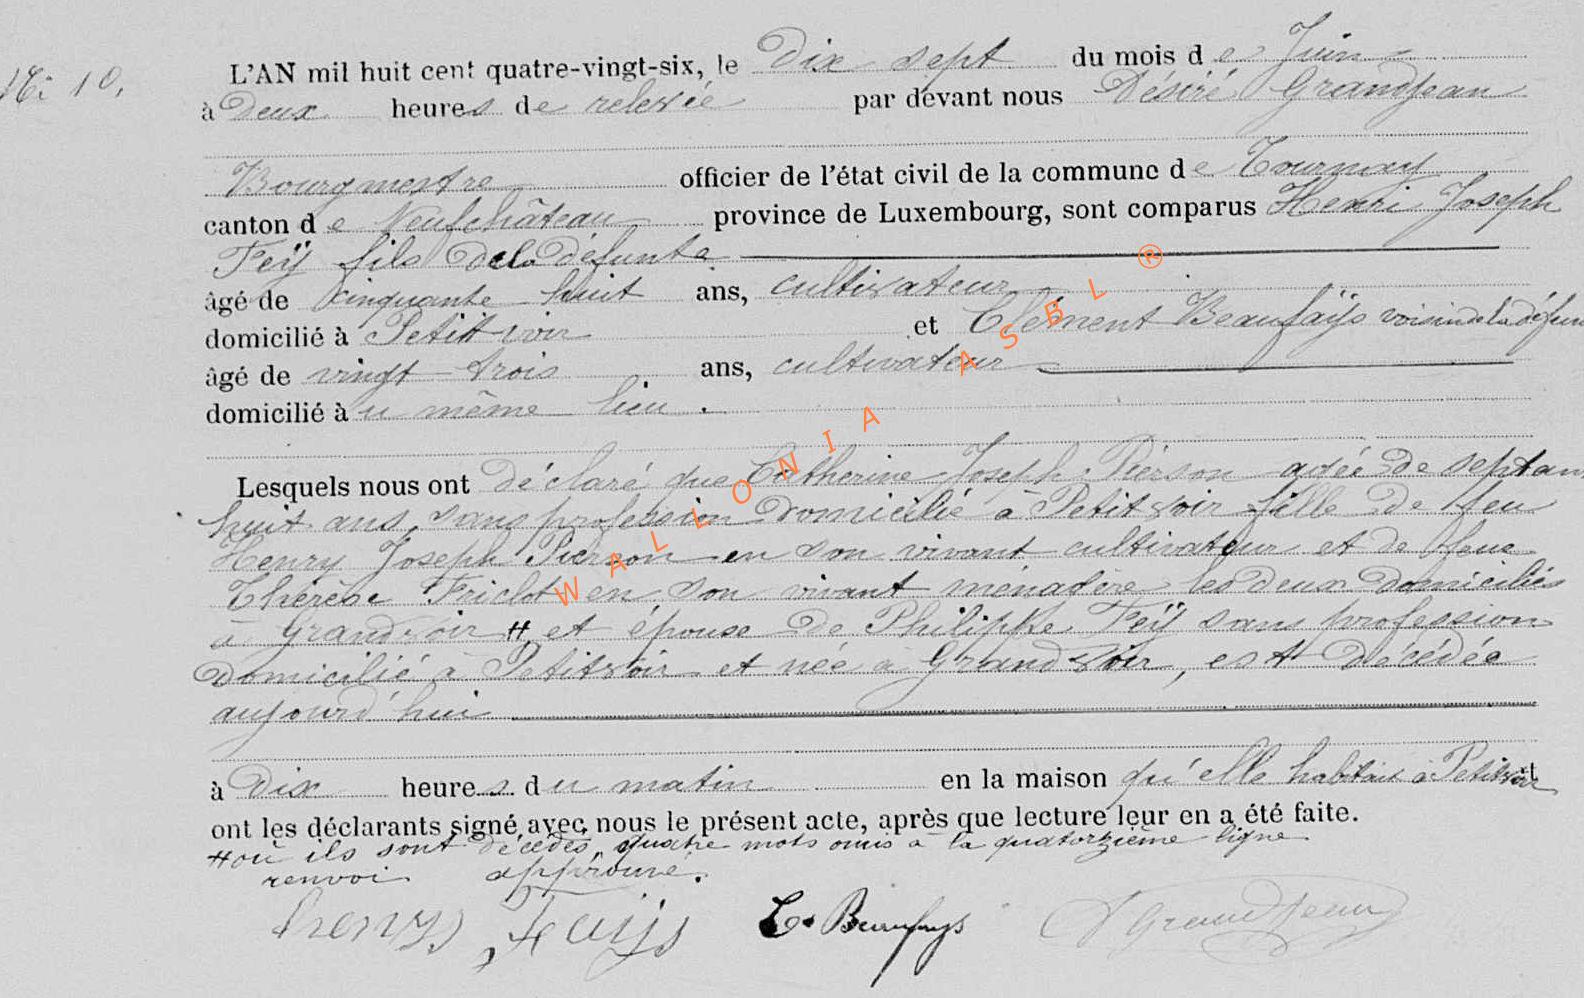 No 10.
L'AN mil huit cent quatre-vingt-six, le Dix sept du mois de Juin
à Deux heures de relevée par devant nous Désiré Grandjean
Bourgmestre officier de l'état civil de la commune de Tournay
canton de Neufchâteau province de Luxembourg, sont comparus Henri Joseph
Feÿ fils de la défunte
âgé de cinquante huit ans, cultivateur
domicilié à Petitvoir et Clément Beaufaÿs voisin de la défun
âgé de vingt trois ans, cultivateur
domicilié à u même lieu.
Lesquels nous ont déclaré que Catherine Joseph Pierson agée de septan
huit ans, sans profession domicilié à Petitvoir fille de feu
Henry Joseph Pierson en son vivant cultivateur et de feue
Thérèse Friclot en son vivant ménagère les deux domiciliés
à Grandvoir # et épouse de Philippe Feÿ sans profession
domicilié à Petitvoir et née à Grandvoir, est décédée
aujourd'hui
à Dix heures du matin en la maison qu'elle habitait à Petitvoir et
ont les déclarants signé avec nous le présent acte, après que lecture leur en a été faite.
# où ils sont décédés, quatre mots omis à la quatorzième ligne
renvoi approuvé.
henry Faÿs C. Beaufays D Grandjean
WALLONIA ASBL ®